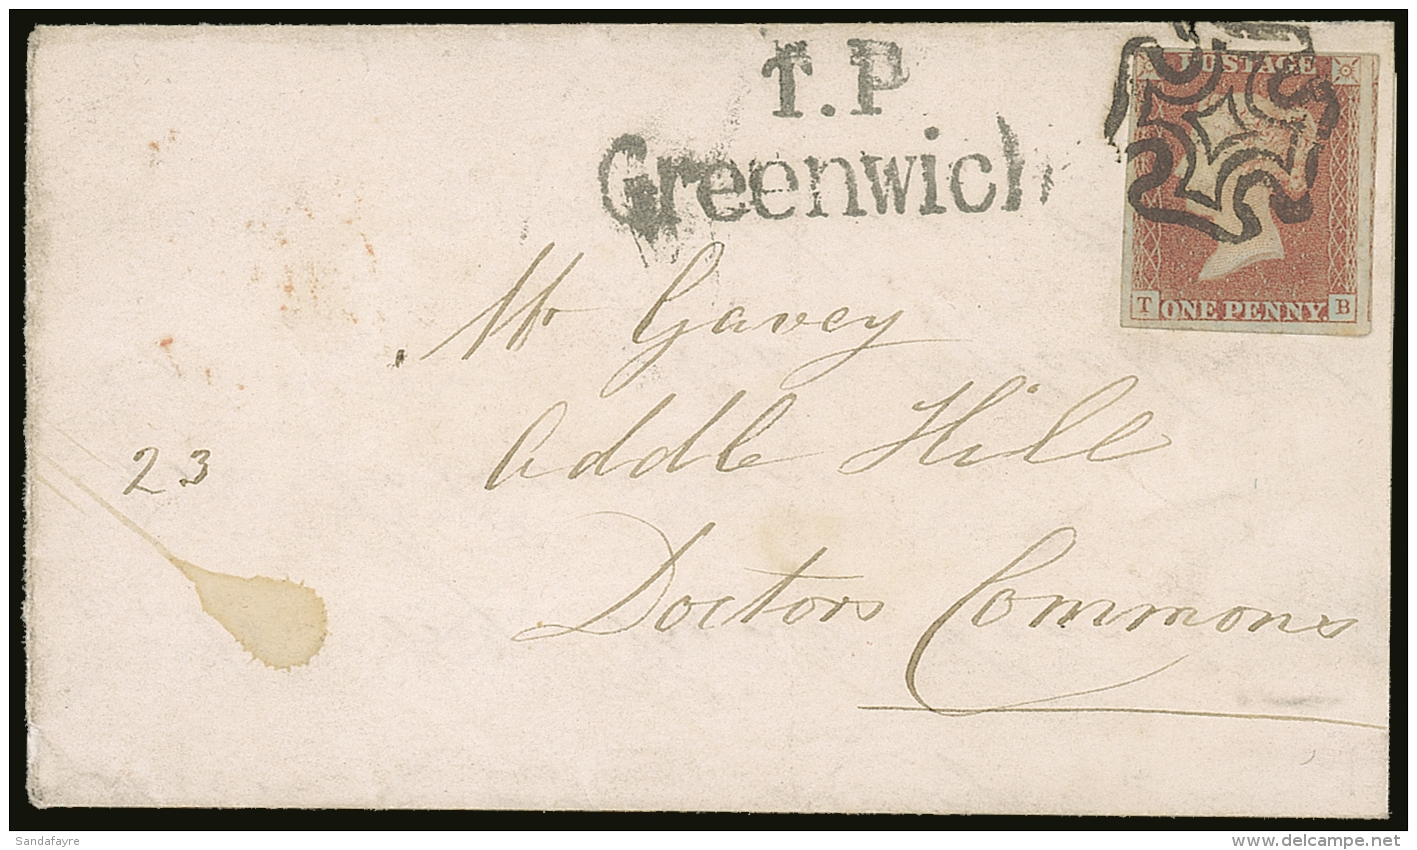 T.P
Greenwich
POSTAGE
T ONE PENNY B
Mr Gavey
Addle Hill
Doctors Commons
23
Sandafayre
www.delcampe.net